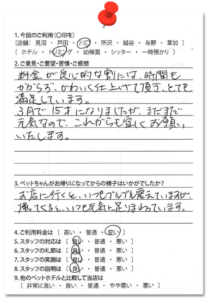 1. 今回のご利用(○印を)
[店舗: 見沼 ・ 戸田 ・ ・ 所沢 ・ 越谷 ・ 与野 ・ 草加 ]
[ ホテル ・ トリミング ・ 幼稚園 ・ シッター ・ 一時預かり ]
2. ご意見・ご要望・苦情・ご感想
料金が良心的な割には、時間も
かからず、かわいく仕上げて頂き、とても
満足しています。
3月で15才になりましたが、まだまだ
元気なので、これからも宜しくお願い
いたします。
3. ペットちゃんがお帰りになってからの様子はいかがでしたか?
お店に行くと、いつもブルブル震えていますが、
帰ってくると、いつも元気に走りまわっています。
4. ご利用料金は [ 高い ・ 普通 ・ 安い ]
5. スタッフの対応は [ 良い ・ 普通 ・ 悪い ]
6. スタッフの礼節は [ 良い ・ 普通 ・ 悪い ]
7. スタッフの笑顔は [ 良い ・ 普通 ・ 悪い ]
8. スタッフの説明は [ 良い ・ 普通 ・ 悪い ]
9. 他のペットホテルと比較して当店は
[ 非常に良い ・ 良い ・ 普通 ・ やや悪い ・ 悪い ]